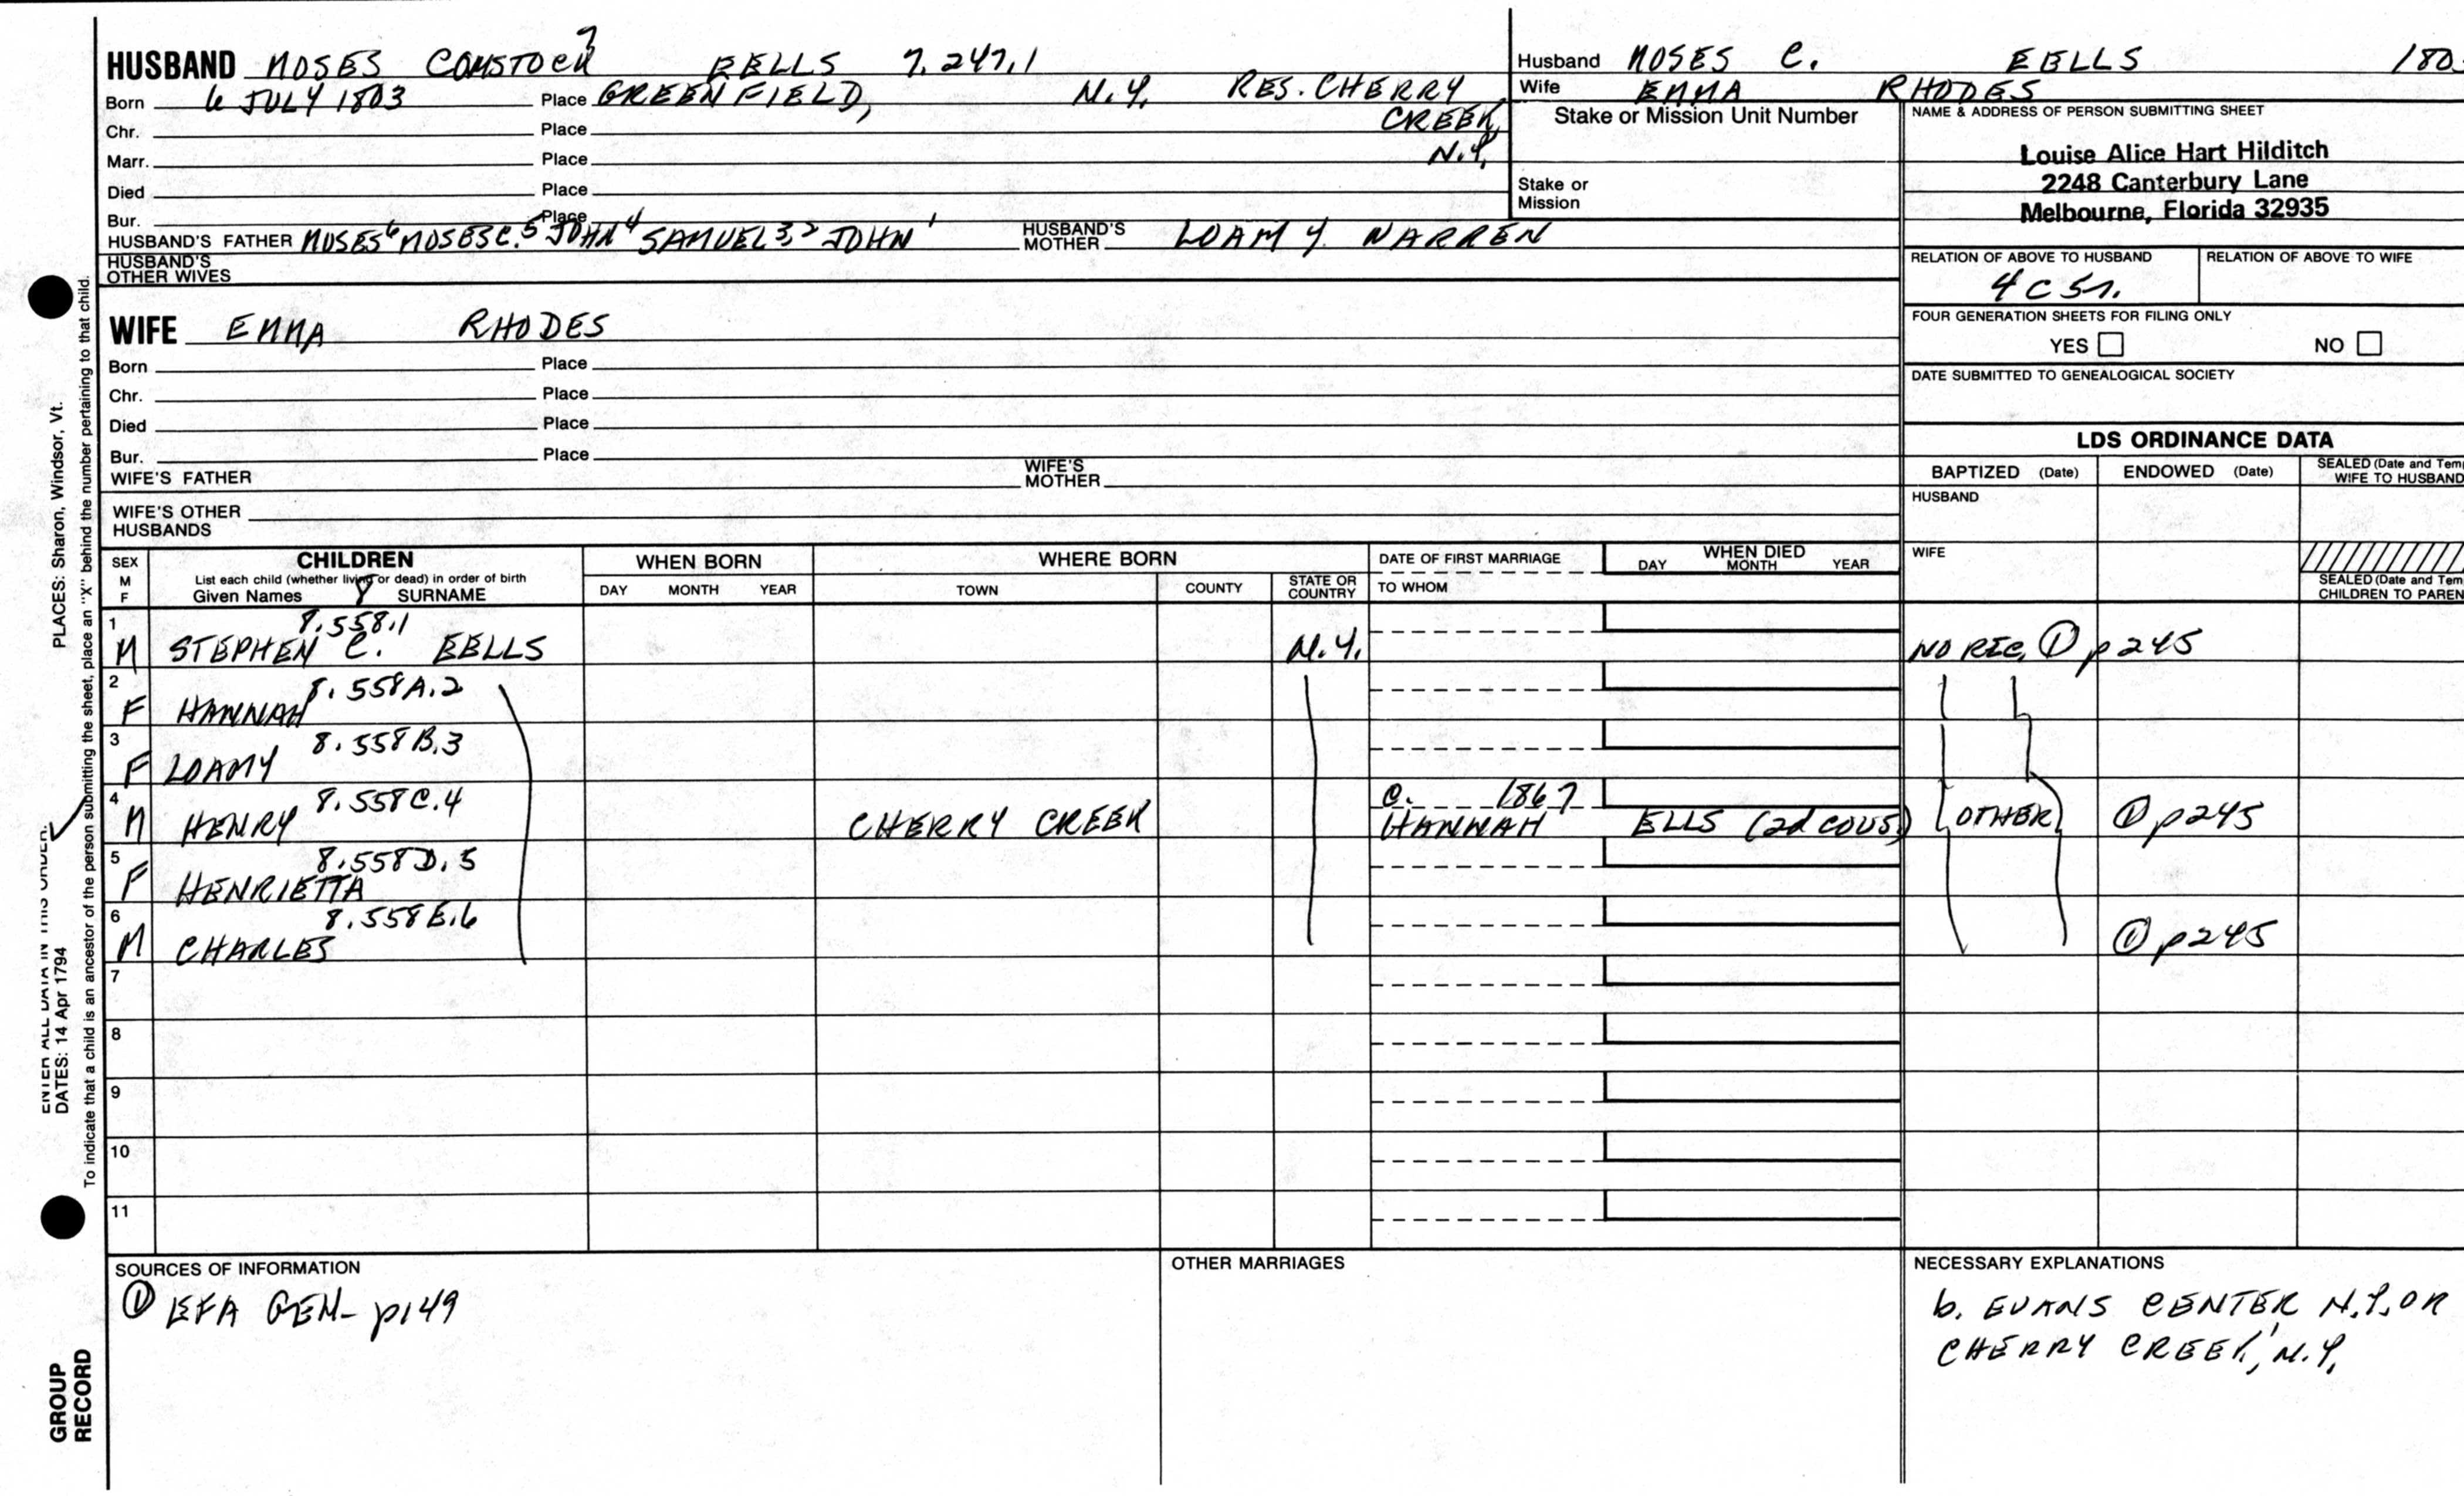 HUSBAND MOSES COMSTOCK 7 EELLS 7.247.1
Born 6 JULY 1803 Place GREENFIELD, N.Y. RES. CHERRY
Chr. Place CREEK,
Marr. Place N.Y.
Died Place
Bur. Place
HUSBAND'S FATHER MOSES6 MOSES C.5 JOHN4 SAMUEL3,2 JOHN1 HUSBAND'S MOTHER LOAMY WARREN
HUSBAND'S
OTHER WIVES
Husband MOSES C. EELLS 180
Wife EMMA RHODES
Stake or Mission Unit Number
Stake or
Mission
NAME & ADDRESS OF PERSON SUBMITTING SHEET
Louise Alice Hart Hilditch
2248 Canterbury Lane
Melbourne, Florida 32935
RELATION OF ABOVE TO HUSBAND RELATION OF ABOVE TO WIFE
4C5r.
FOUR GENERATION SHEETS FOR FILING ONLY
YES NO
DATE SUBMITTED TO GENEALOGICAL SOCIETY
WIFE EMMA RHODES
Born Place
Chr. Place
Died Place
Bur. Place
WIFE'S FATHER WIFE'S MOTHER
WIFE'S OTHER
HUSBANDS
LDS ORDINANCE DATA
BAPTIZED (Date) ENDOWED (Date) SEALED (Date and Tem
WIFE TO HUSBAND
HUSBAND
WIFE
SEALED (Date and Tem
CHILDREN TO PAREN
SEX
M
F
CHILDREN
List each child (whether living or dead) in order of birth
Given Names 8 SURNAME
WHEN BORN
DAY MONTH YEAR
WHERE BORN
TOWN COUNTY STATE OR COUNTRY
DATE OF FIRST MARRIAGE
TO WHOM
WHEN DIED
DAY MONTH YEAR
1 8.558.1
M STEPHEN C. EELLS N.Y. NO REC. ① p245
2 8.558A.2
F HANNAH
3 8.558B.3
F LOAMY
4 8.558C.4 C. 1867
M HENRY CHERRY CREEK HANNAH ELLS (2d COUS) (OTHER) ① p245
5 8.558D.5
F HENRIETTA
6 8.558E.6
M CHARLES ① p245
7
8
9
10
11
SOURCES OF INFORMATION
① EFA GEN- p149
OTHER MARRIAGES
NECESSARY EXPLANATIONS
b. EVANS CENTER N.Y. OR
CHERRY CREEK, N.Y.
ENTER ALL DATA IN THIS ORDER:
PLACES: Sharon, Windsor, Vt.
DATES: 14 Apr 1794
To indicate that a child is an ancestor of the person submitting the sheet, place an "X" behind the number pertaining to that child.
GROUP
RECORD